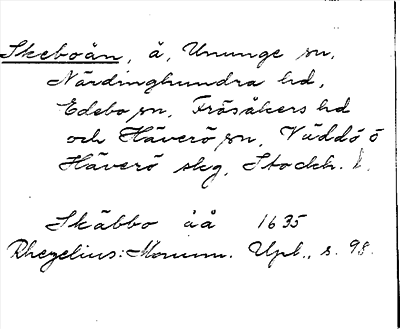 Skeboån, å, Ununge sn,
Närdinghundra hd,
Edebo sn, Frösåkers hd
och Häverö sn, Väddö ö
Häverö skg, Stockh. l.
Skäbbo åå 1635
Rhezelius: Monum. Upl., s. 98.